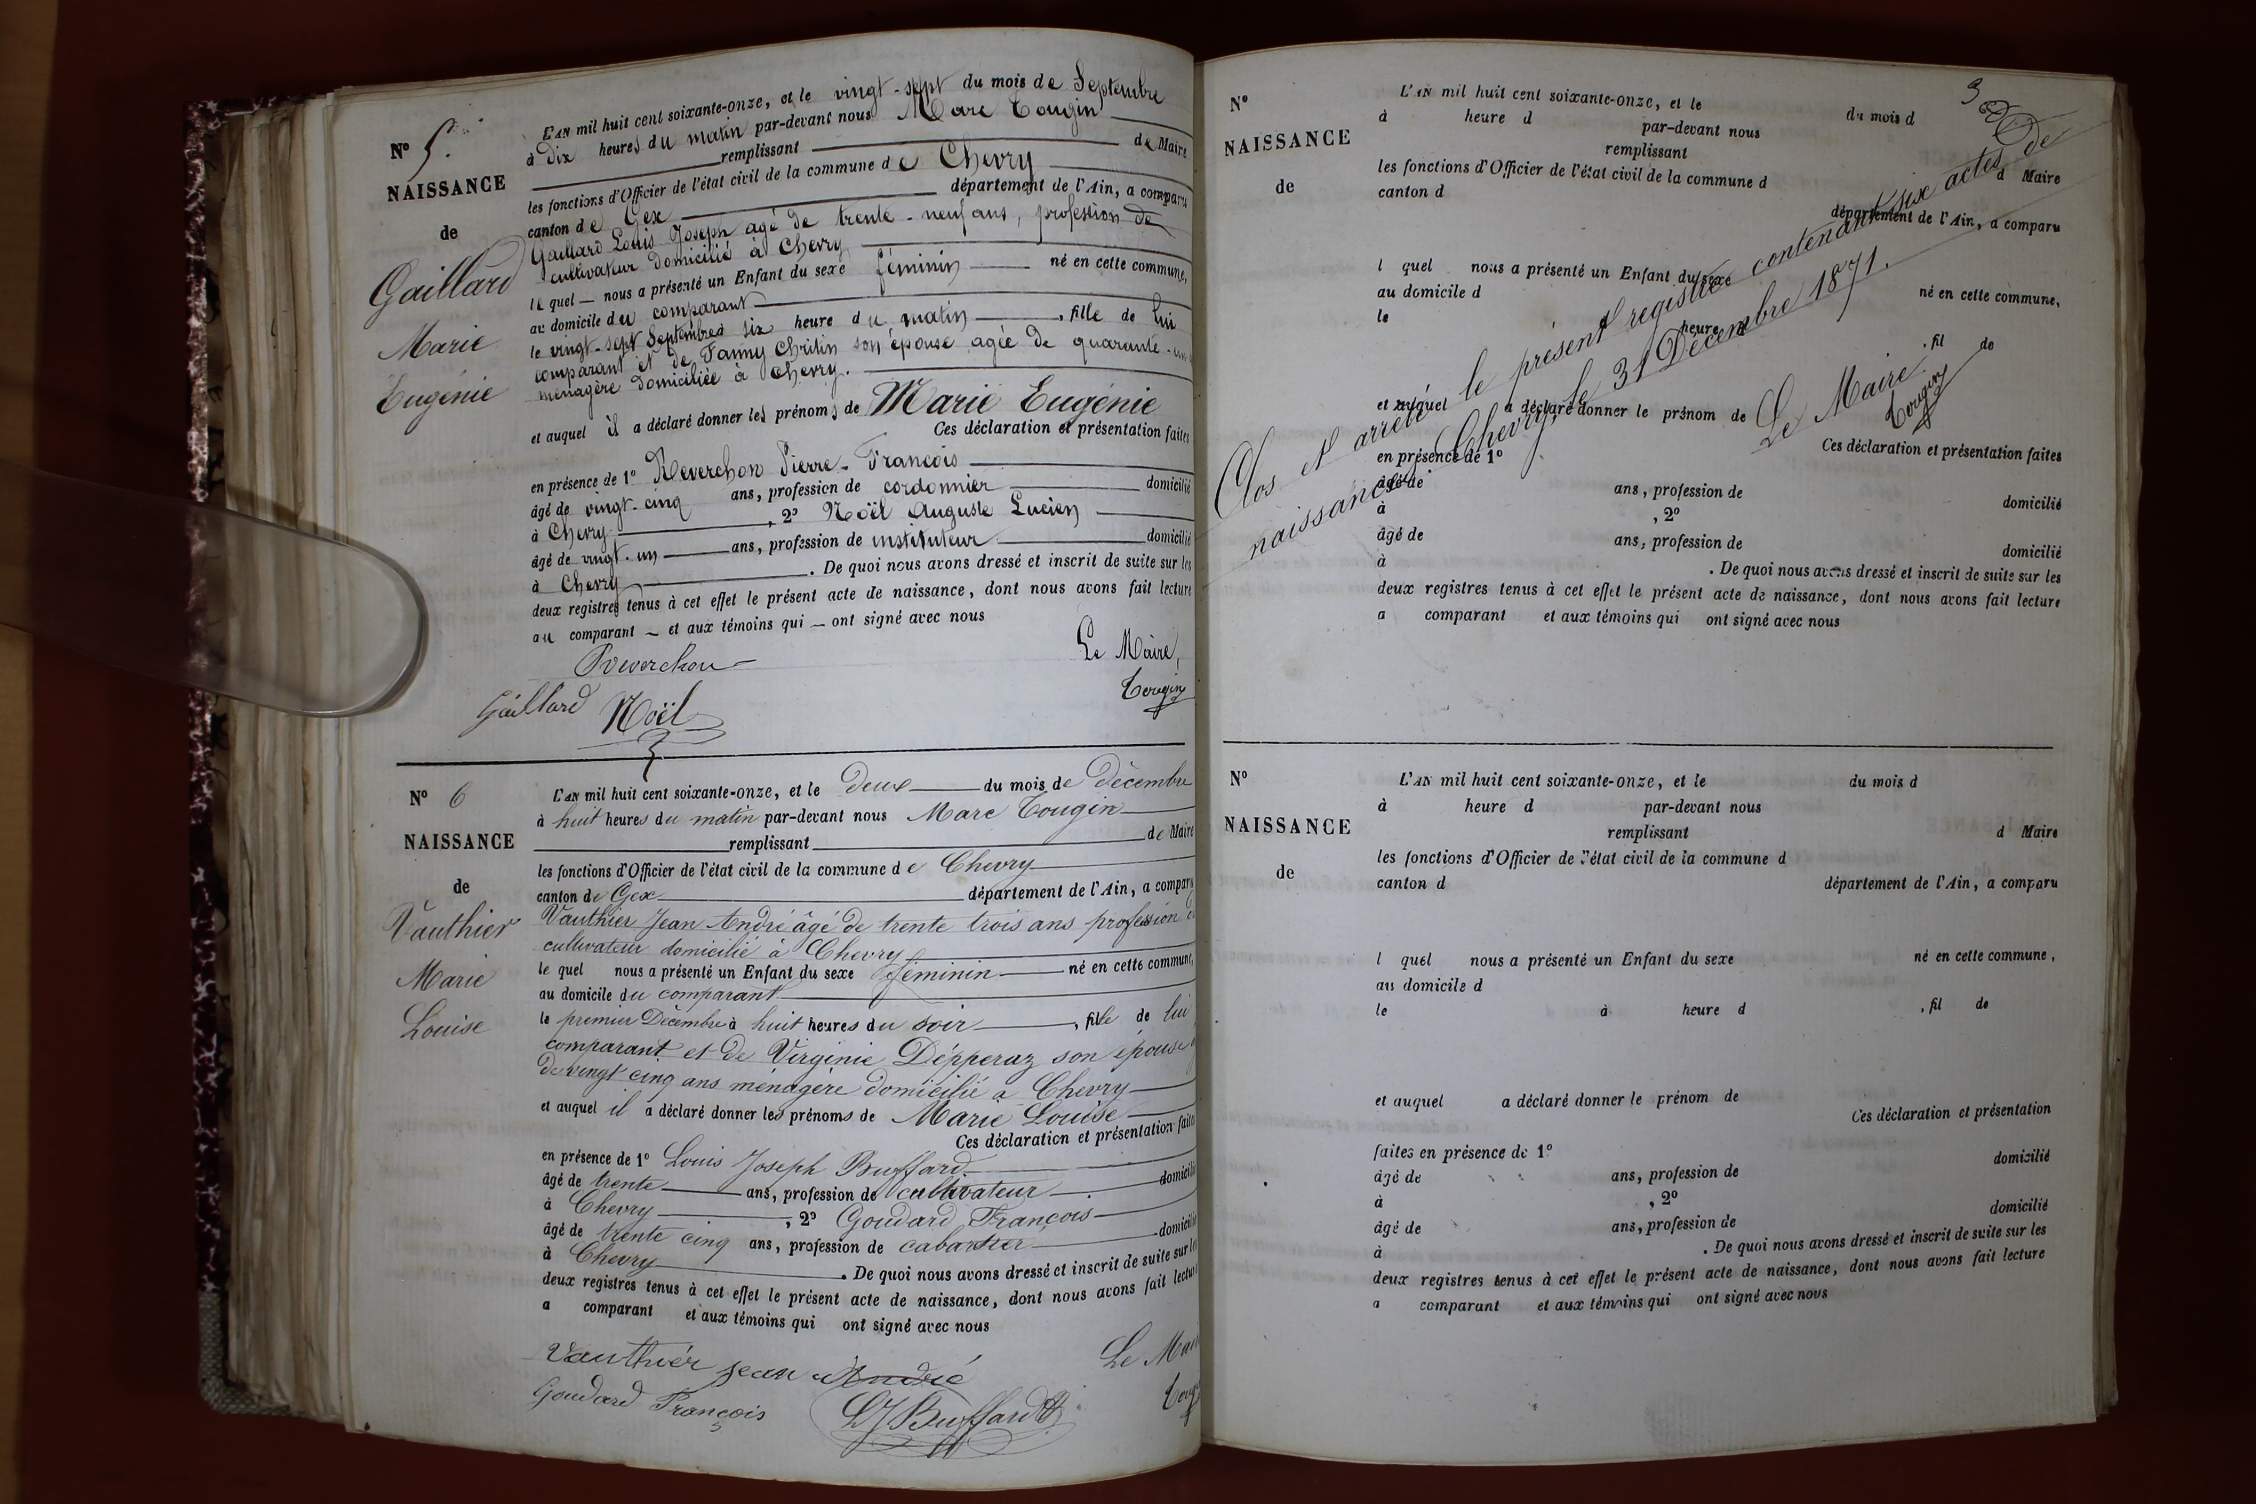 N° 5.
NAISSANCE
de
Gaillard
Marie
Eugénie
L'AN mil huit cent soixante-onze, et le vingt-sept du mois de Septembre
à dix heures du matin par-devant nous Marc Tougin
remplissant de Maire
les fonctions d'Officier de l'état civil de la commune de Chevry
canton de Gex département de l'Ain, a comparu
Gaillard Louis Joseph agé de trente-neuf ans, profession de
cultivateur domicilié à Chevry
le quel nous a présenté un Enfant du sexe féminin né en cette commune,
au domicile du comparant
le vingt-sept Septembre à six heure du matin, fille de lui
comparant et de Fanny Chritin son épouse agée de quarante-un
ménagère domiciliée à Chevry.
et auquel il a déclaré donner les prénoms de Marie Eugénie
Ces déclaration et présentation faites
en présence de 1° Reverchon Pierre-François
âgé de vingt-cinq ans, profession de cordonnier domicilié
à Chevry, 2° Noël Auguste Lucien
âgé de vingt-un ans, profession de instituteur domicilié
à Chevry. De quoi nous avons dressé et inscrit de suite sur les
deux registres tenus à cet effet le présent acte de naissance, dont nous avons fait lecture
au comparant et aux témoins qui ont signé avec nous
Reverchon
Le Maire,
Gaillard Noël
Tougin
N° 6
NAISSANCE
de
Vauthier
Marie
Louise
L'AN mil huit cent soixante-onze, et le deux du mois de décembre
à huit heures du matin par-devant nous Marc Tougin
remplissant de Maire
les fonctions d'Officier de l'état civil de la commune de Chevry
canton de Gex département de l'Ain, a comparu
Vauthier Jean André âgé de trente trois ans profession de
cultivateur domicilié à Chevry
le quel nous a présenté un Enfant du sexe féminin né en cette commune,
au domicile du comparant
le premier Décembre à huit heures du soir, fille de lui
comparant et de Virginie Dépperaz son épouse
de vingt cinq ans ménagère domicilié à Chevry
et auquel il a déclaré donner les prénoms de Marie Louise
Ces déclaration et présentation faites
en présence de 1° Louis Joseph Buffard
âgé de trente ans, profession de cultivateur domicilié
à Chevry, 2° Goudard François
âgé de trente cinq ans, profession de cabartier domicilié
à Chevry. De quoi nous avons dressé et inscrit de suite sur les
deux registres tenus à cet effet le présent acte de naissance, dont nous avons fait lecture
a comparant et aux témoins qui ont signé avec nous
Vauthier jean André
Le Maire
Goudard François
LJ Buffard
Tougin
N°
NAISSANCE
de
L'AN mil huit cent soixante-onze, et le du mois d
à heure d par-devant nous
remplissant d Maire
les fonctions d'Officier de l'état civil de la commune d
canton d département de l'Ain, a comparu
l quel nous a présenté un Enfant du sexe né en cette commune,
au domicile d
le heure , fil de
et auquel a déclaré donner le prénom de
Ces déclaration et présentation faites
en présence de 1°
âgé de ans, profession de domicilié
à , 2°
âgé de ans, profession de domicilié
à . De quoi nous avons dressé et inscrit de suite sur les
deux registres tenus à cet effet le présent acte de naissance, dont nous avons fait lecture
a comparant et aux témoins qui ont signé avec nous
Clos et arrêté le présent registre contenant six actes de
naissances Chevry, le 31 Décembre 1871.
Le Maire
Tougin
N°
NAISSANCE
de
L'AN mil huit cent soixante-onze, et le du mois d
à heure d par-devant nous
remplissant d Maire
les fonctions d'Officier de l'état civil de la commune d
canton d département de l'Ain, a comparu
l quel nous a présenté un Enfant du sexe né en cette commune,
au domicile d
le à heure d , fil de
et auquel a déclaré donner le prénom de
Ces déclaration et présentation
faites en présence de 1°
âgé de ans, profession de domicilié
à , 2°
âgé de ans, profession de domicilié
à . De quoi nous avons dressé et inscrit de suite sur les
deux registres tenus à cet effet le présent acte de naissance, dont nous avons fait lecture
a comparant et aux témoins qui ont signé avec nous